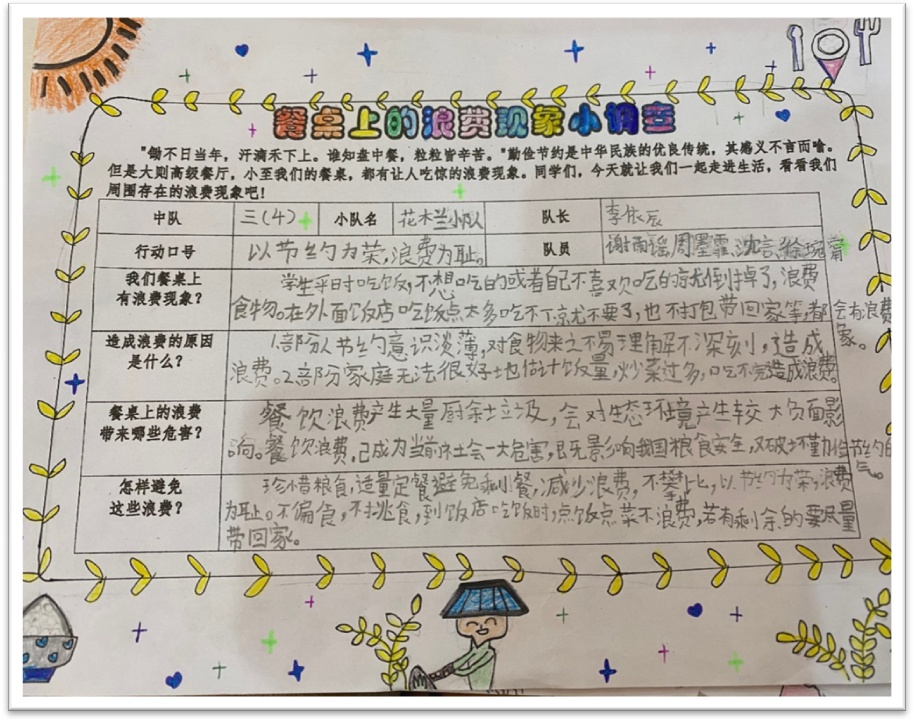 餐桌上的浪费现象小调查
"锄禾日当午，汗滴禾下土。谁知盘中餐，粒粒皆辛苦。"勤俭节约是中华民族的优良传统，其意义不言而喻。
但是大则高级餐厅，小至我们的餐桌，都有让人吃惊的浪费现象。同学们，今天就让我们一起走进生活，看看我们
周围存在的浪费现象吧！
中队 三（4） 小队名 花木兰小队 队长 李依辰
行动口号 以节约为荣，浪费为耻。 队员 谢雨谣，周墨霏，沈言，
我们餐桌上
有浪费现象？
学生平时吃饭，不想吃的或者自己不喜欢吃的就倒掉了，浪费
食物。在外面饭店吃饭点太多吃不了就不要了，也不打包带回家等都会有浪费
象。
造成浪费的原因
是什么？
1.部分人节约意识淡薄，对食物来之不易理解不深刻，造成
浪费。2.部分家庭无法很好地估计饭量，炒菜过多，吃不完造成浪费。
餐桌上的浪费
带来哪些危害？
餐饮浪费产生大量厨余垃圾，会对生态环境产生较大负面影
响。餐饮浪费，已成为当前社会一大危害，既影响我国粮食安全，又破坏勤俭节约的
气。
怎样避免
这些浪费？
珍惜粮食，适量定餐避免剩餐，减少浪费，不攀比，以节约为荣，浪费
为耻。不偏食，不挑食，到饭店吃饭时，点饭点菜不浪费，若有剩余的要尽量
带回家。